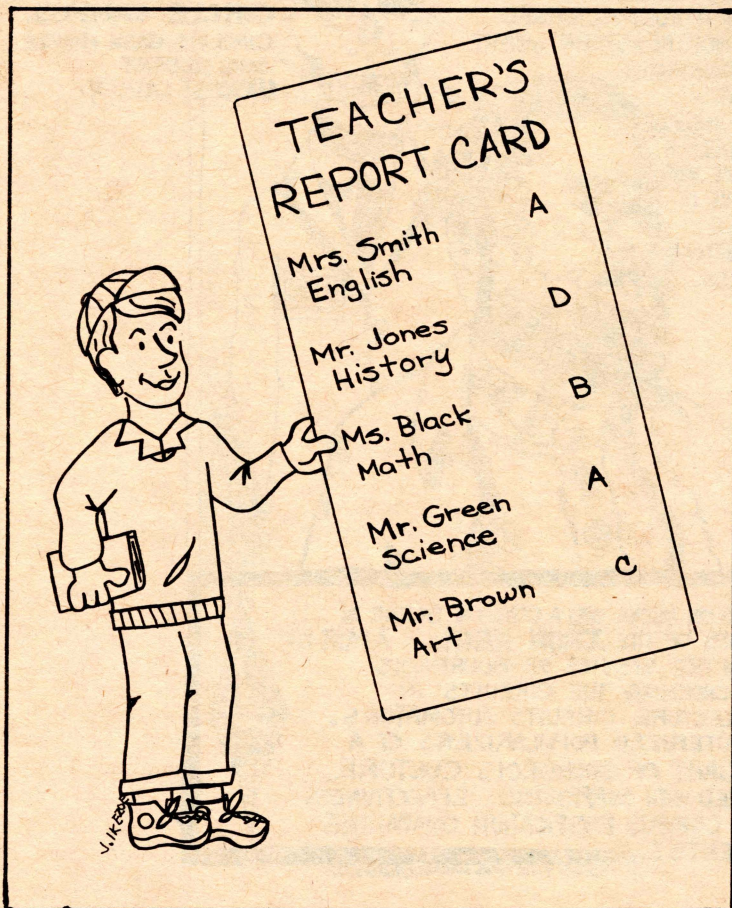 TEACHER'S
REPORT CARD
Mrs. Smith A
English
Mr. Jones D
History
Ms. Black B
Math
Mr. Green A
Science
Mr. Brown C
Art